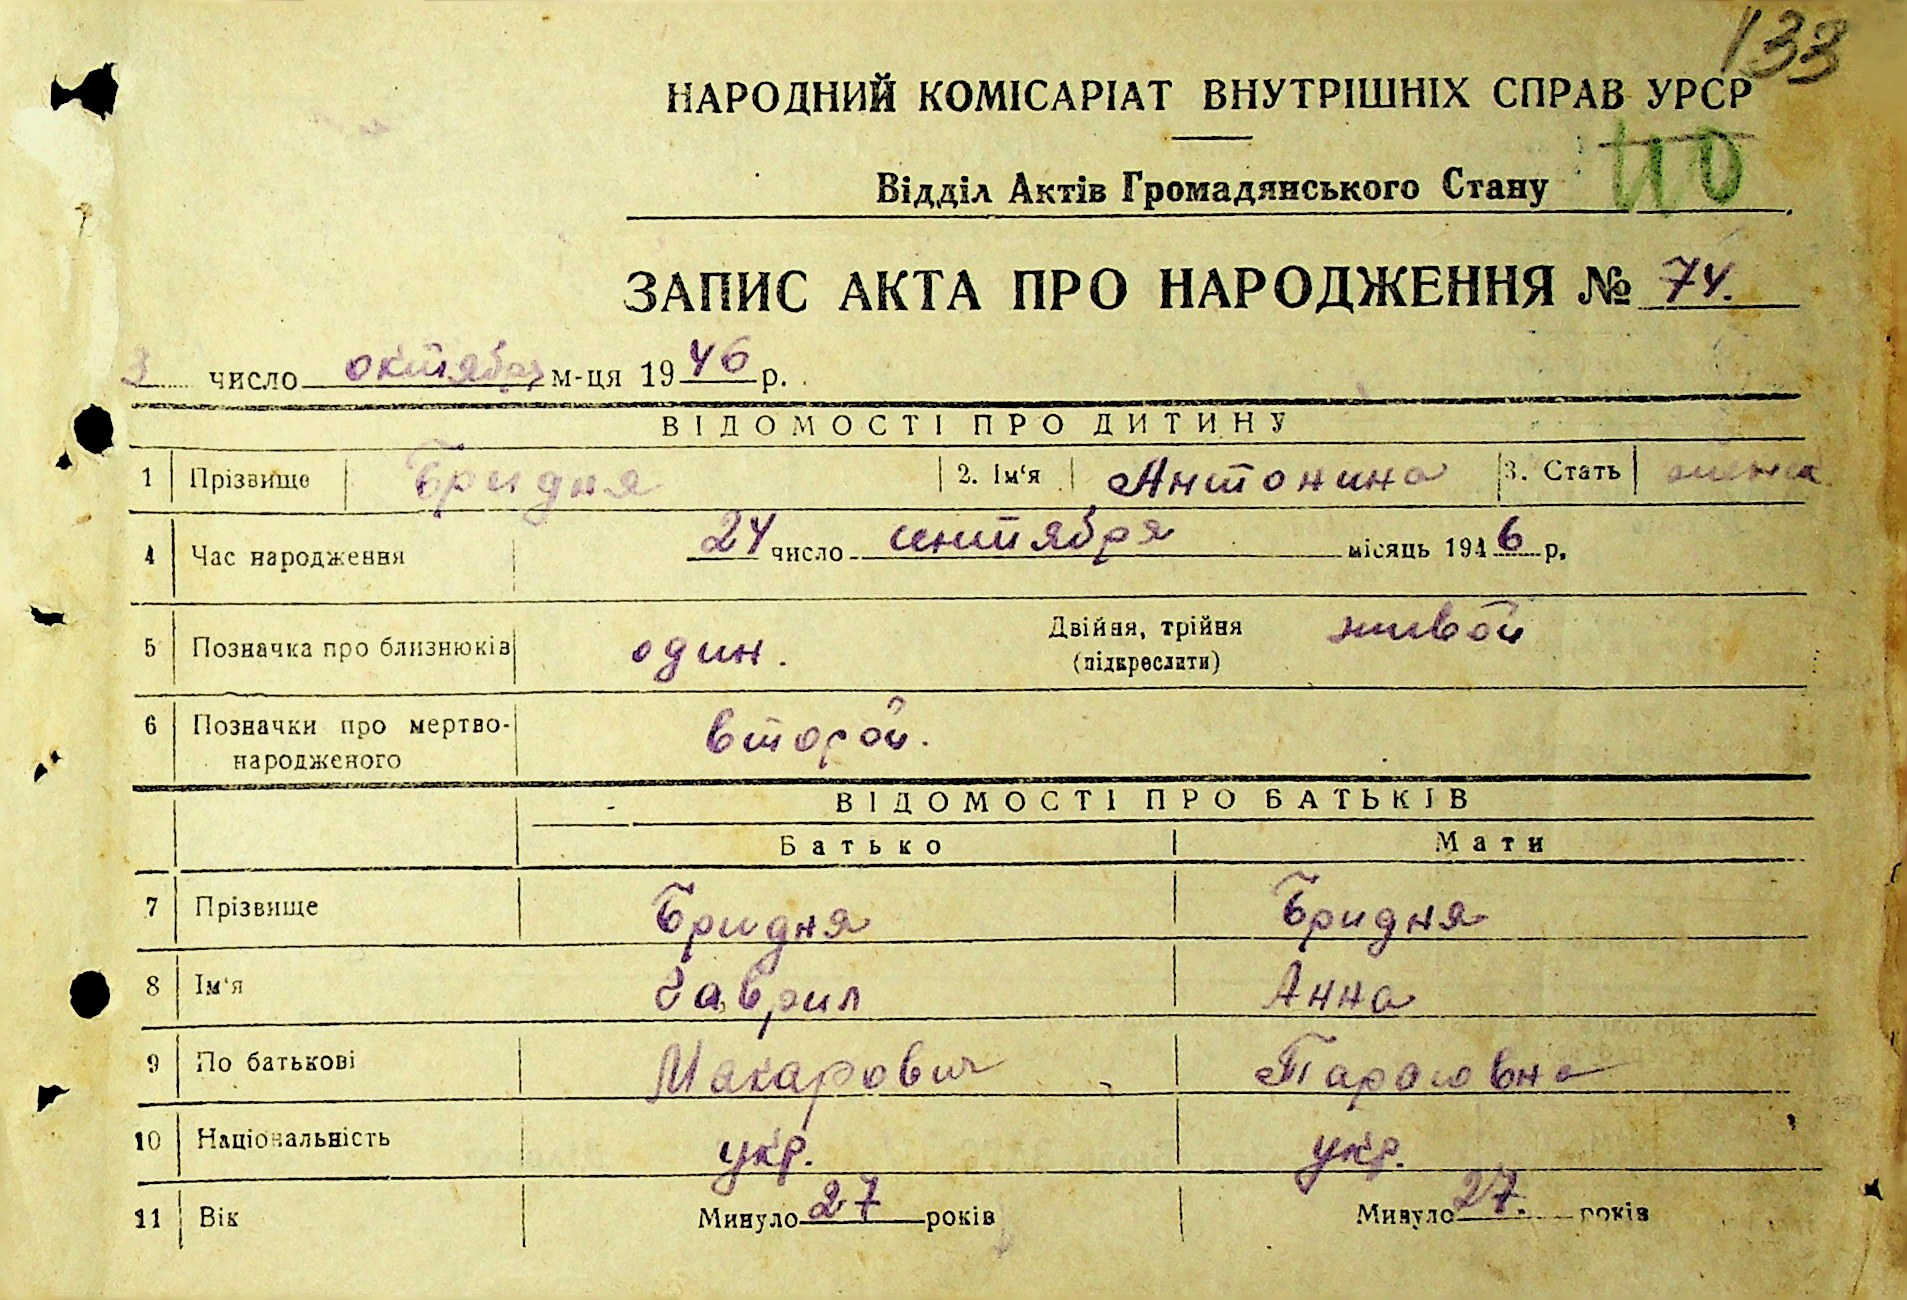 133
НАРОДНИЙ КОМІСАРІАТ ВНУТРІШНІХ СПРАВ УРСР
110
Відділ Актів Громадянського Стану
ЗАПИС АКТА ПРО НАРОДЖЕННЯ № 74.
3 число октября м-ця 1946 р.
ВІДОМОСТІ ПРО ДИТИНУ
1 Прізвище Бридня 2. Ім'я Антонина 3. Стать женск
4 Час народження 24 число сентября місяць 1946 р.
5 Позначка про близнюків один. Двійня, трійня (підкреслити) живой
6 Позначки про мертво-
народженого второй.
ВІДОМОСТІ ПРО БАТЬКІВ
Батько Мати
7 Прізвище Бридня Бридня
8 Ім'я Гаврил Анна
9 По батькові Макарович Тарасовна
10 Національність укр. укр.
11 Вік Минуло 27 років Минуло 27. років